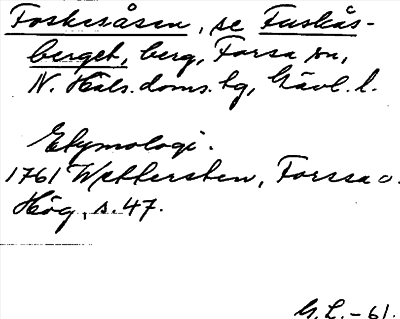 Foskesåsen, se Fuskås-
berget, berg, Forsa sn,
N. Häls. doms. tg, Gävl. l.
Etymologi.
1761 Wettersten, Forssa o.
Hög, s. 47.
G. L. - 61.